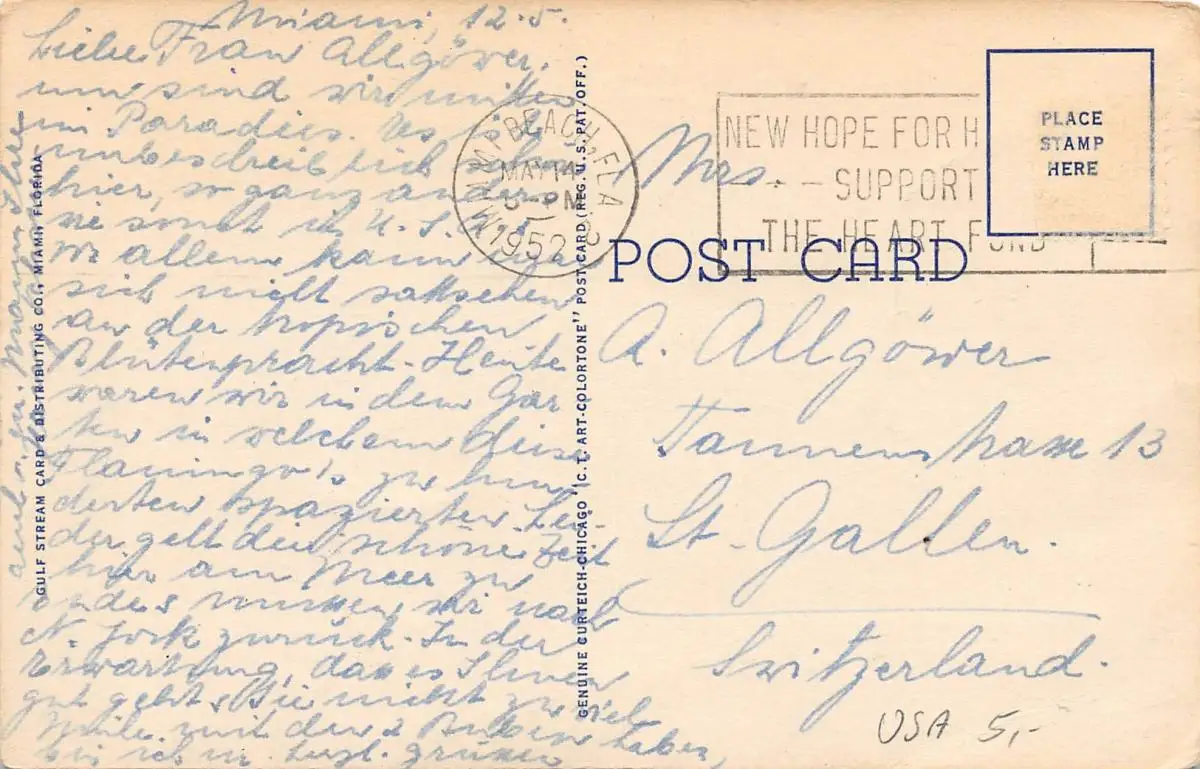 Miami, 12.5.
Liebe Frau Allgöwer.
nun sind wir mitten
im Paradies. Es ist
unbeschreiblich schön
hier, so ganz anders
wie sonst in U.S.A.
Wir allem kann
sich nicht sattsehen
an der tropischen
Blütenpracht. Heute
waren wir in dem Gar
ten in welchem diese
Flamingo's zu hun
derten spazierten. Lei-
der geht die schöne Zeit
hier am Meer zu
Ende & müssen wir nach
N. York zurück. In der
Erwartung, dass es Ihnen
gut geht & Sie nicht zu viel
Mühe mit den 2 Buben haben,
bin ich m. herzl. grüssen
auch an Ihre
GULF STREAM CARD & DISTRIBUTING CO., MIAMI, FLORIDA
GENUINE CURTEICH-CHICAGO "C.T. ART-COLORTONE" POST CARD (REG. U.S. PAT. OFF.)
MIAMI BEACH, FLA
MAY 14
PM
1952
NEW HOPE FOR H
SUPPORT
THE HEART FUND
PLACE
STAMP
HERE
POST CARD
Mrs.
A. Allgöwer
Tannenstrasse 13
St. Gallen.
Switzerland.
USA 5,-